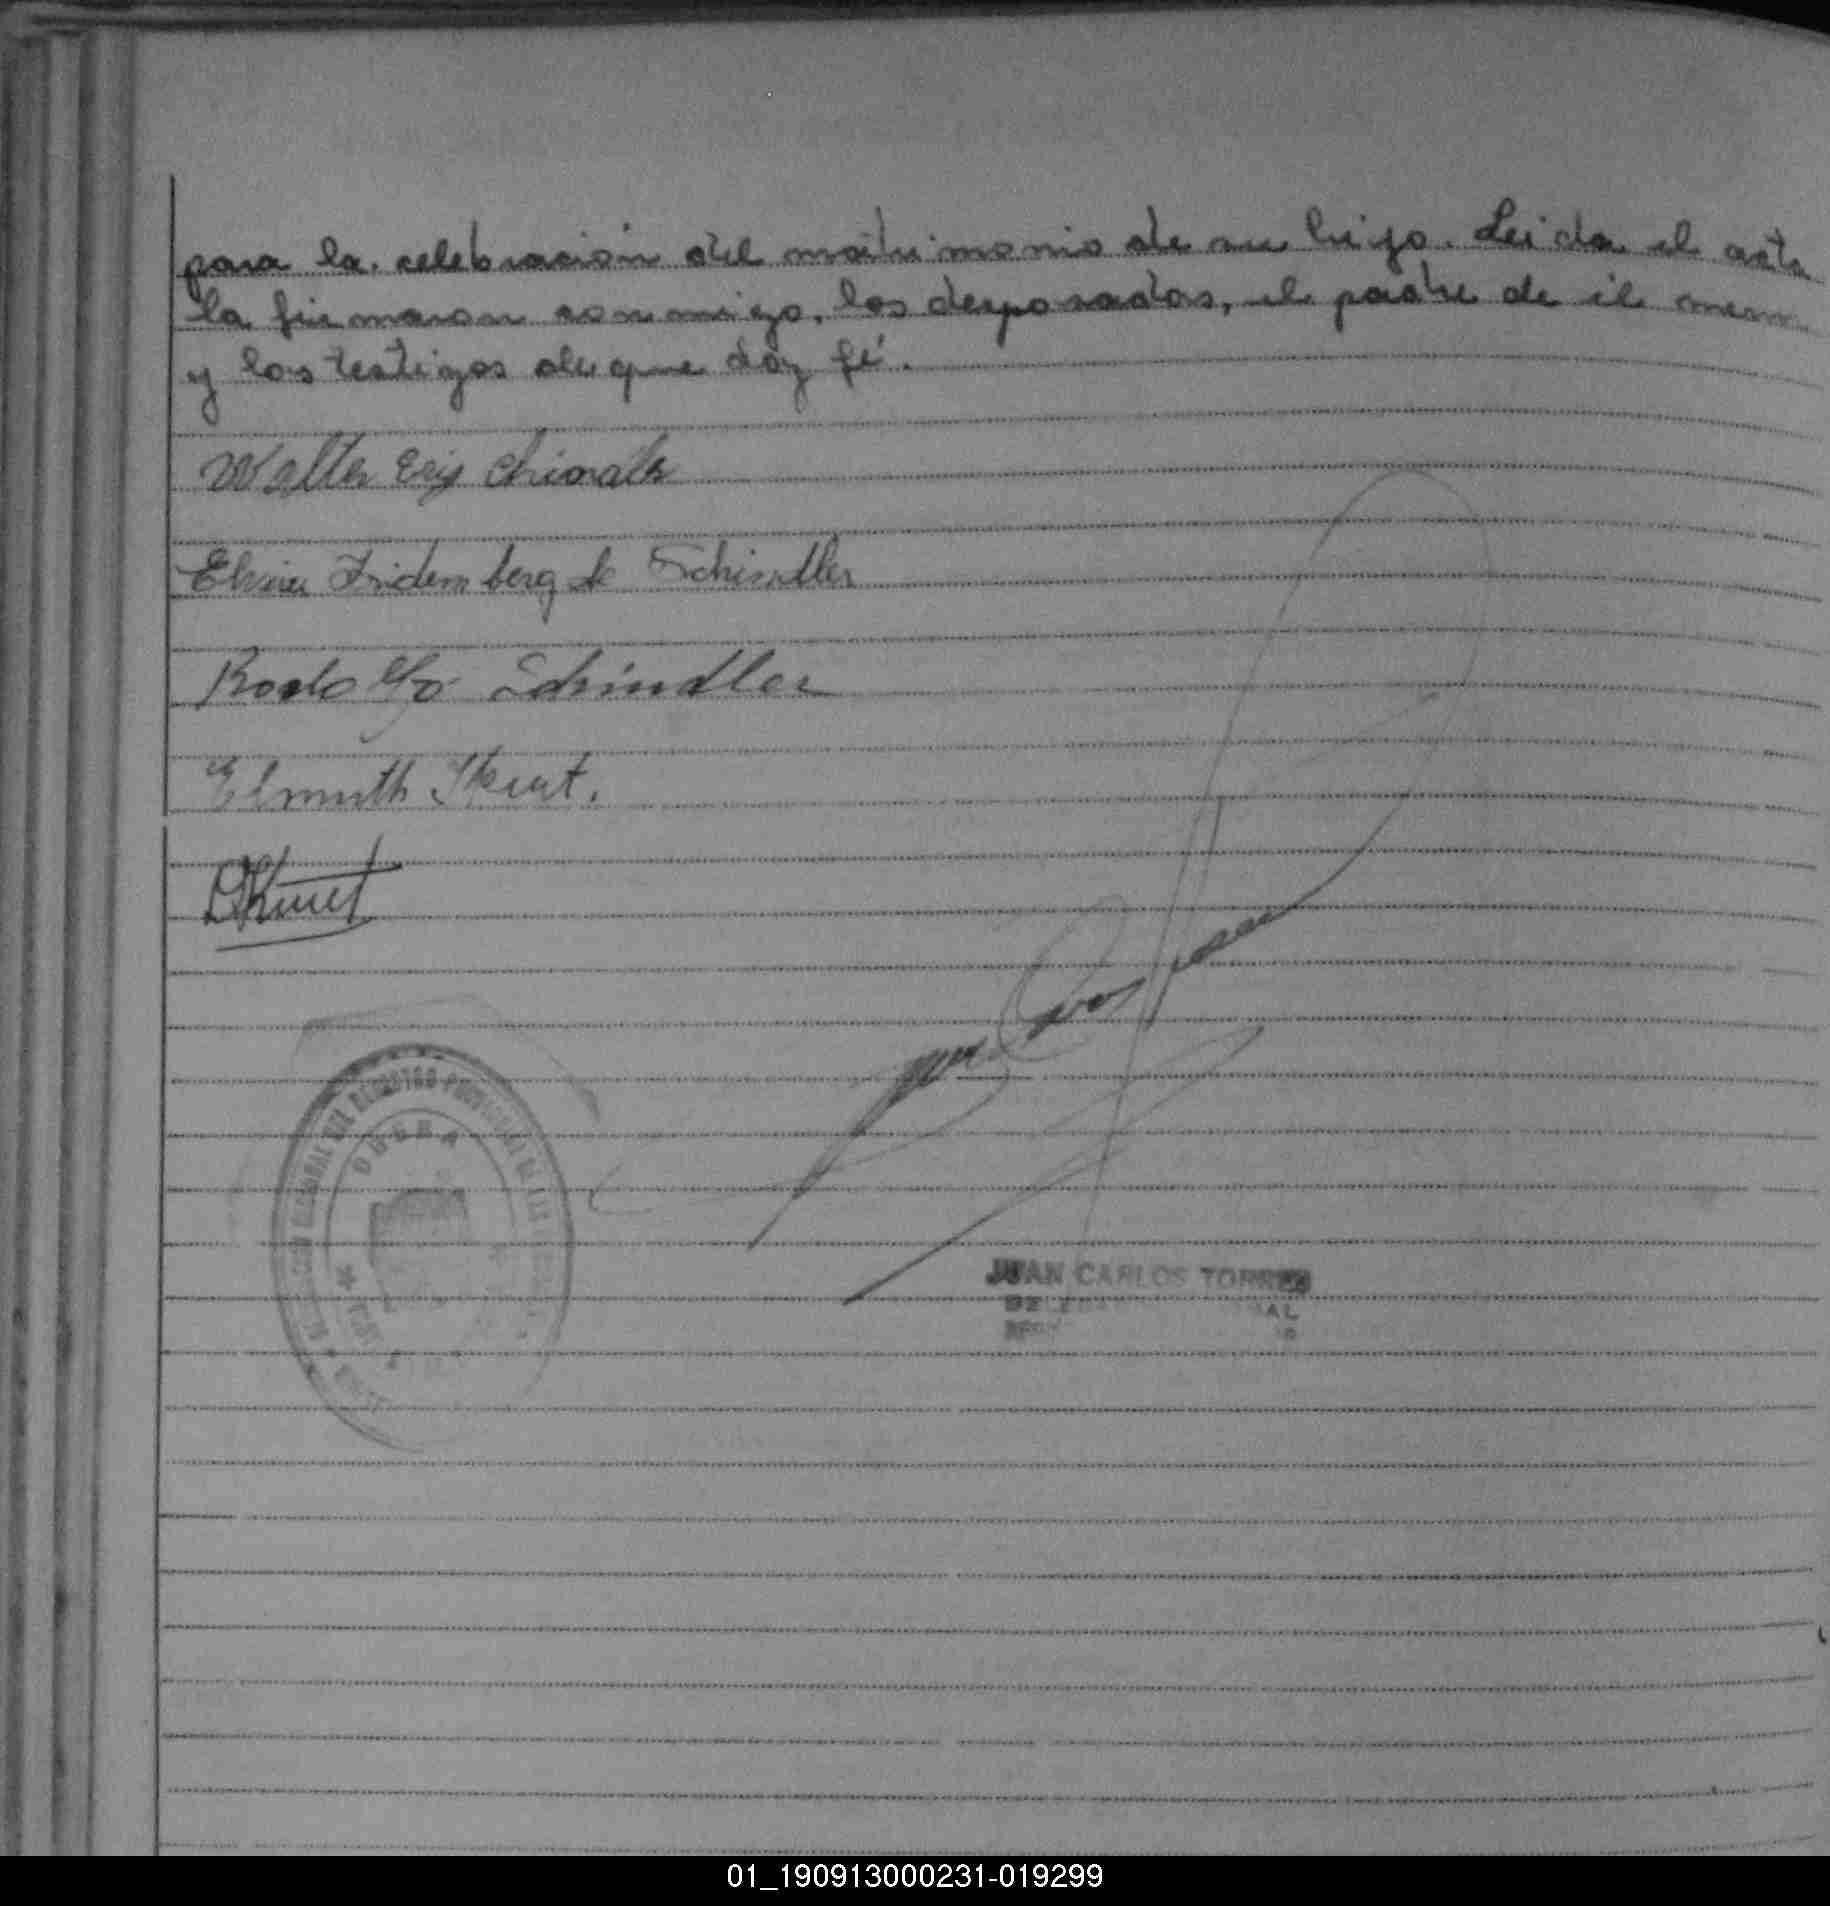 para la celebración del matrimonio de su hijo. Leida el acta
la firmaron conmigo, los desposados, el padre de él
y los testigos de que doy fé.
Walter Erig Chindler
Elvira Fridemberg de Schindler
Rodolfo Schindler
Elmuth Kurt.
Kurt
OBERA
JUAN CARLOS TORRES
01_190913000231-019299